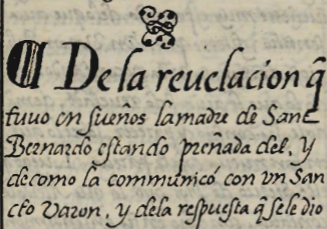 De la reuelacion q̃
tuuo en sueños la madre de Sant
Bernardo estando preñada del, y
de como la communicó con vn San
cto Varon, y dela respuesta q̃ se le dio